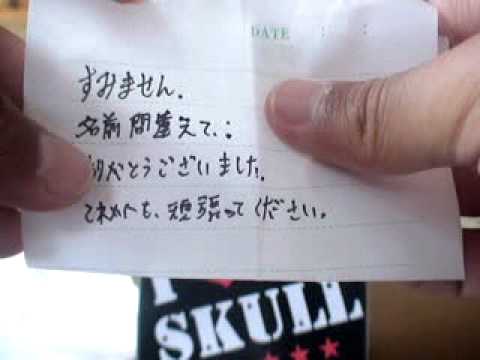 DATE : :
すみません.
名前間違えて.:
りがとうございました.
これからも、頑張ってください。
I
SKULL